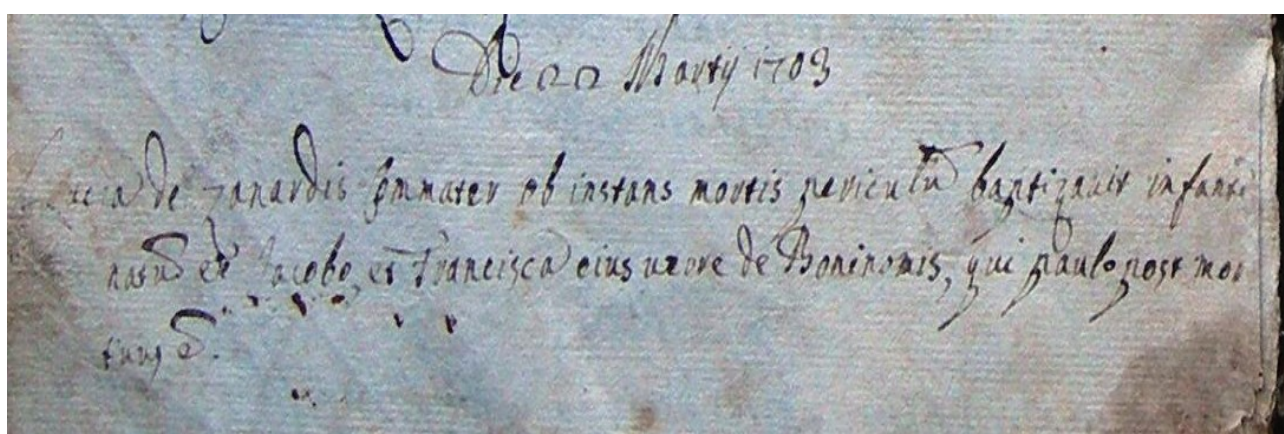 Die 22 Martij 1703
Lucia de Zanardis Commater ob instans mortis periculū baptizavit infantē
natū ex Jacobo, et Francisca eius uxore de Boninomis, qui paulo post mor
tuus ē.